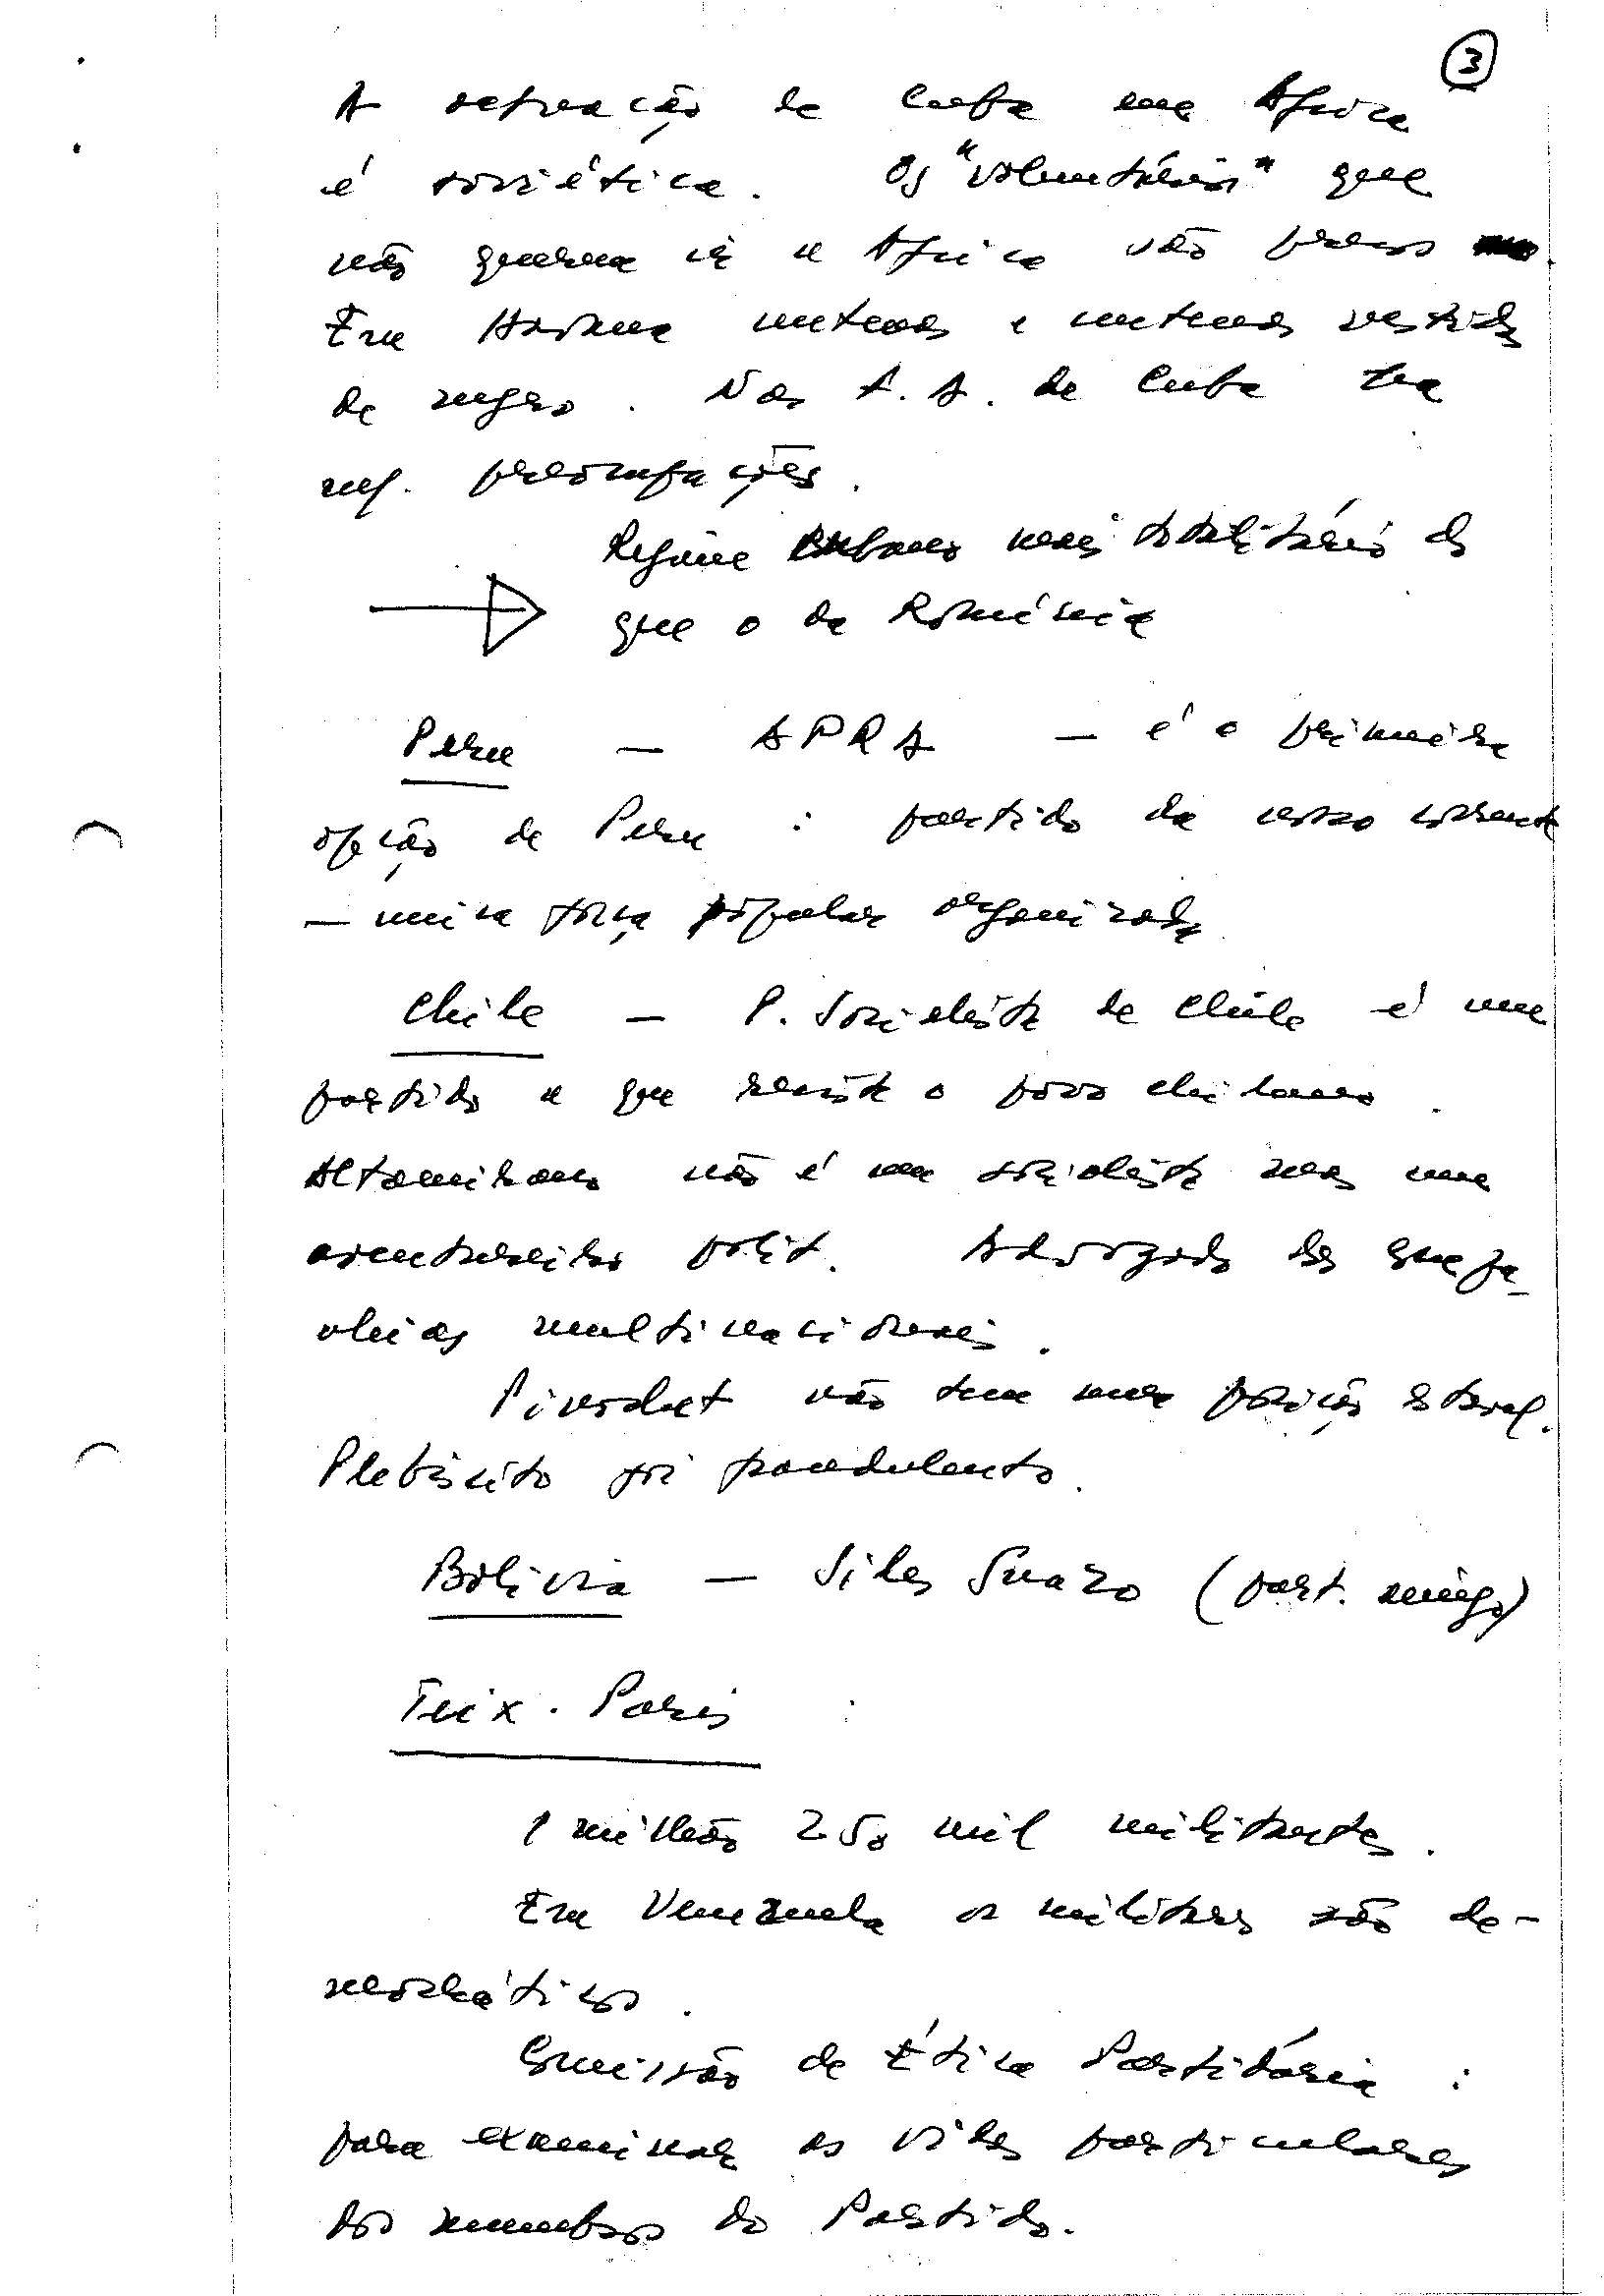 3
A situação de Cuba na Africa
é soviética. Os "voluntários" que
não querem ir a Africa são presos
Em Havana meteras e meteras vestidas
de negro. Nas F.A. de Cuba há
preocupações.
Regime cubano mais totalitário do
que o da Roménia
Peru — APRA — é a primeira
opção do Peru : partido de nossa corrente
— unica força popular organizada
Chile — P. Socialista de Chile é um
partido a que resiste o povo chileno.
Altamirano não é um socialista mas um
aventureiro polit. Advogado de
multinacionais.
Pinochet não tem uma posição estavel.
Plebiscito foi fraudulento.
Bolivia — Siles Suazo (part. amigo)
Teix. Paris :
1 milhão 250 mil militantes.
Em Venezuela os militares são de-
mocráticos.
Comissão de Ética Partidária :
para examinar as vidas particulares
dos membros do Partido.